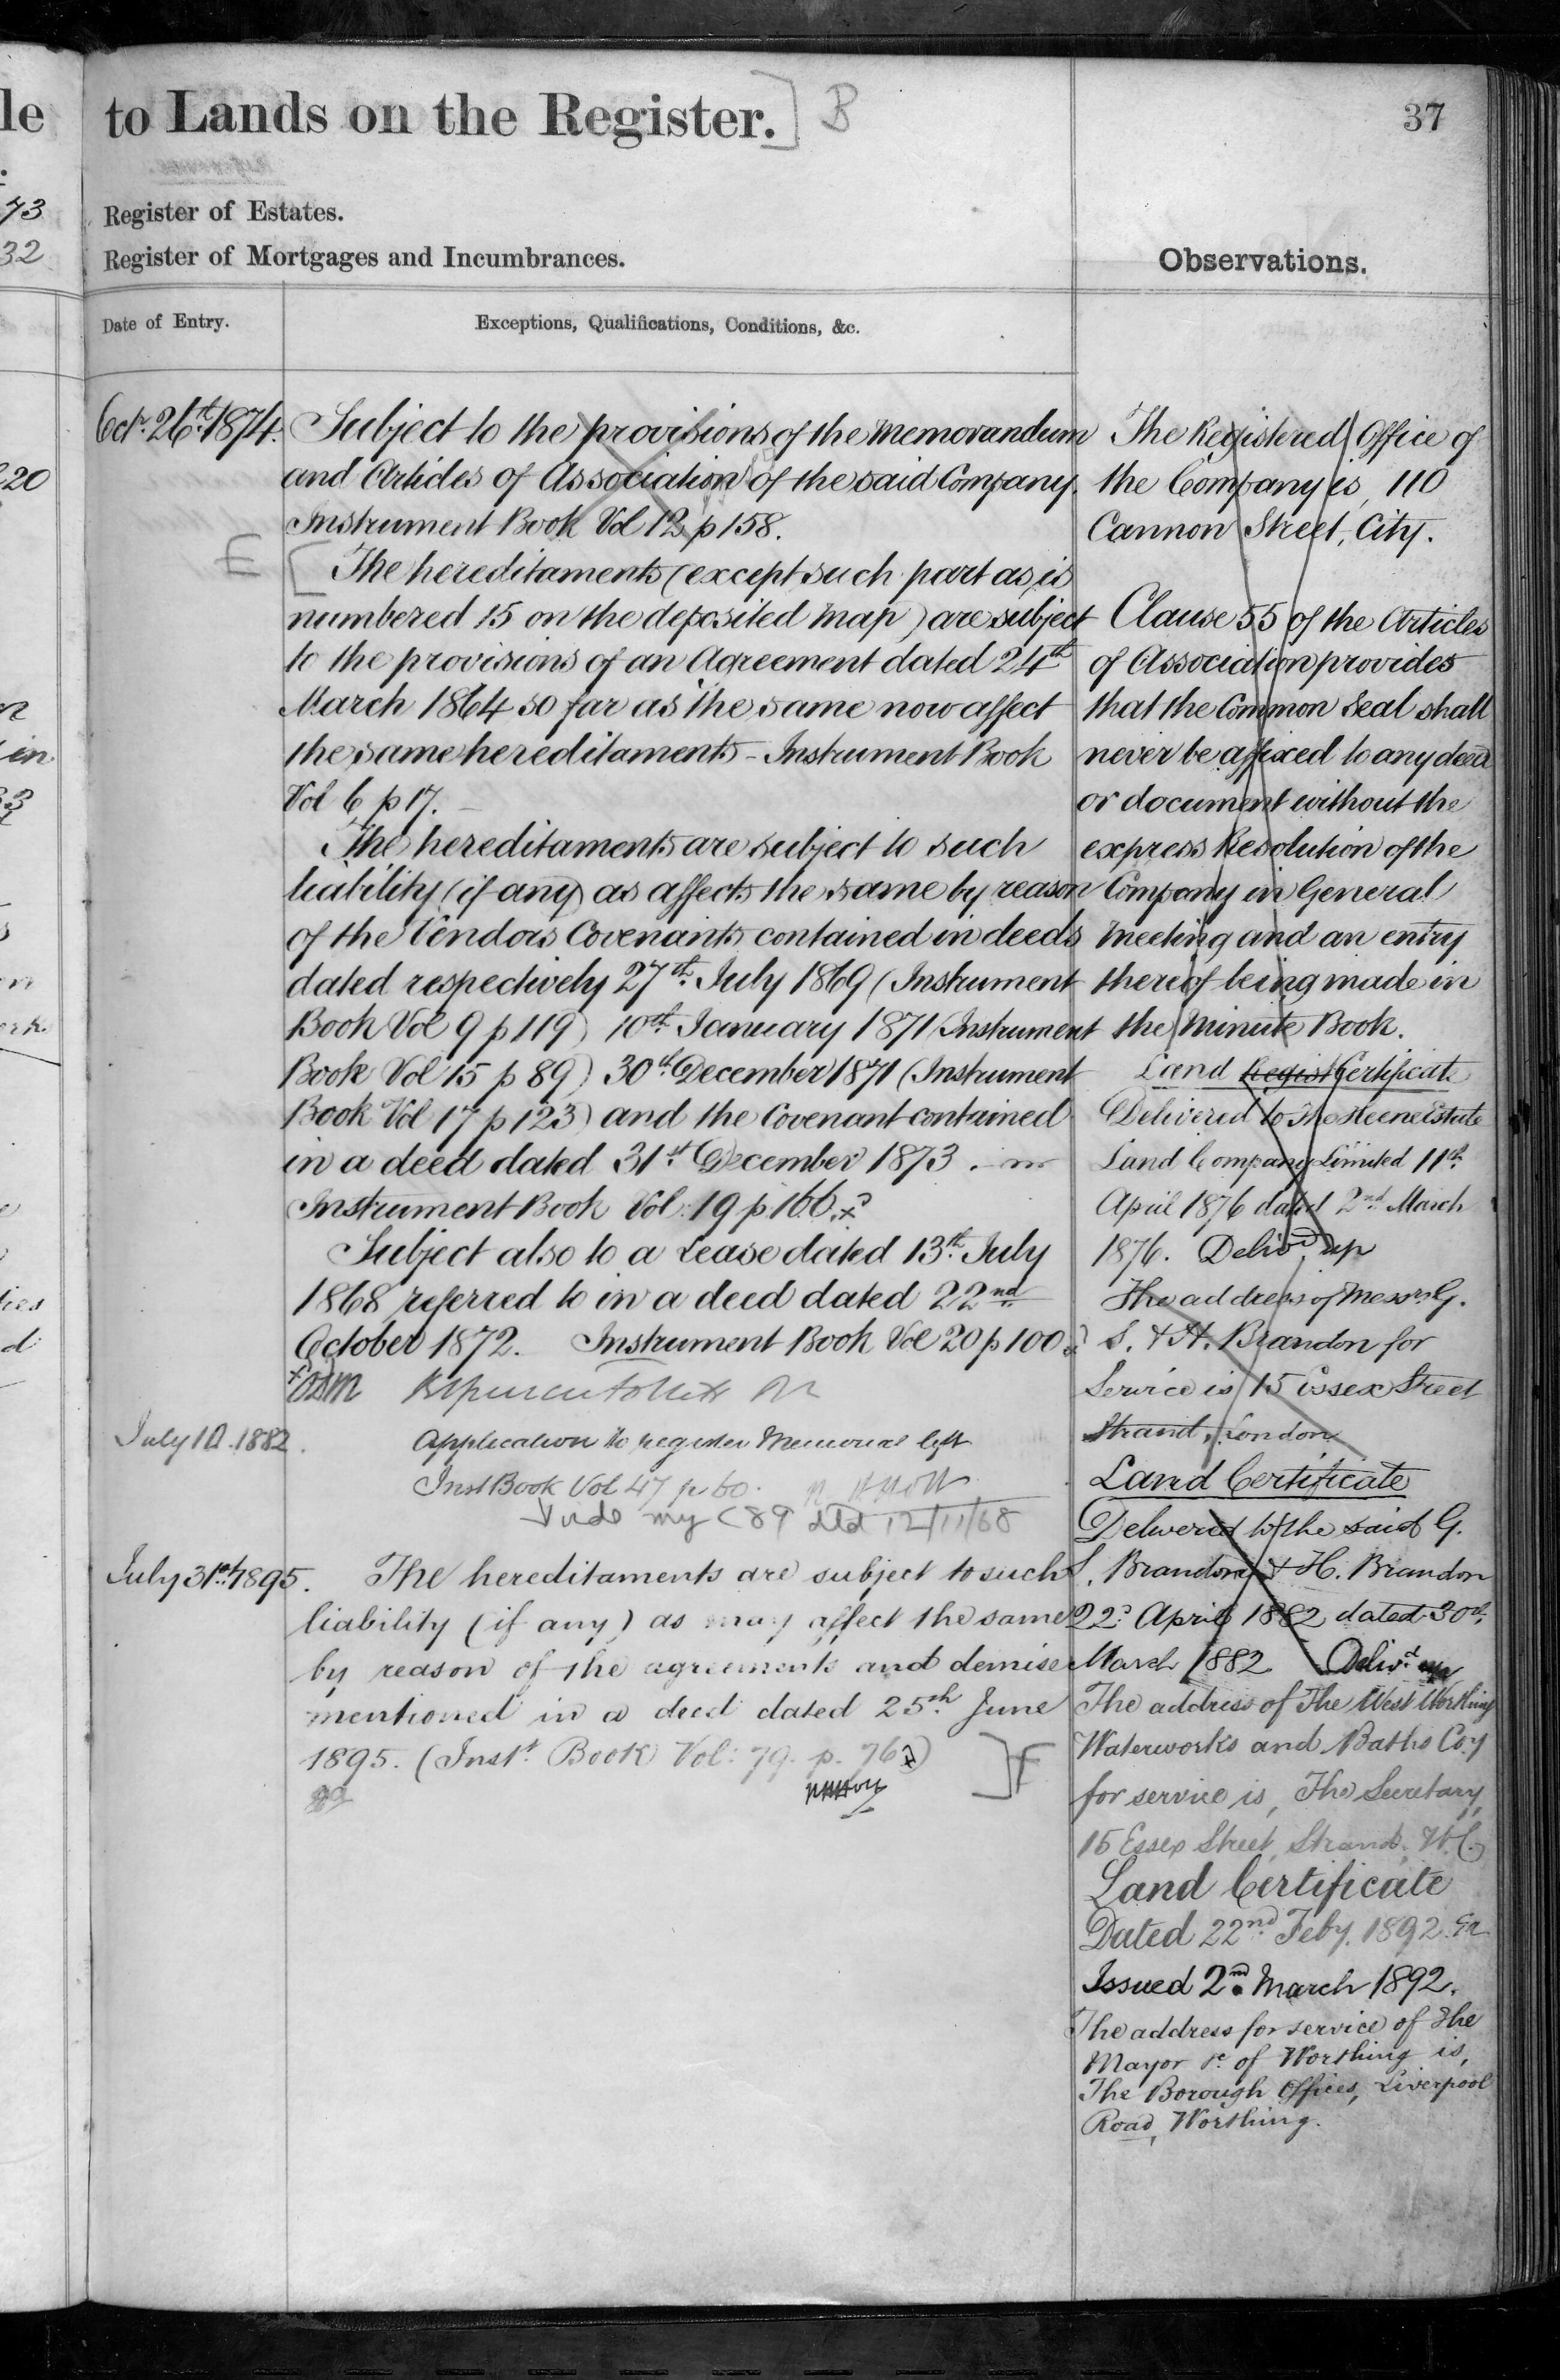 to Lands on the Register.] B
37
Register of Estates.
Register of Mortgages and Incumbrances.
Observations.
Date of Entry.
Exceptions, Qualifications, Conditions, &c.
Octr. 26th. 1874.
Subject to the provisions of the Memorandum
and Articles of Association of the said Company.
Instrument Book Vol 12 p 158.
E [ The hereditaments (except such part as is
numbered 15 on the deposited map) are subject
to the provisions of an Agreement dated 24th
March 1864 so far as the same now affect
the same hereditaments - Instrument Book
Vol 6 p 17.
The hereditaments are subject to such
liability (if any) as affects the same by reason
of the Vendors Covenants contained in deeds
dated respectively 27th. July 1869 (Instrument
Book Vol 9 p 119) 10th January 1871 (Instrument
Book Vol 15 p 89) 30th December 1871 (Instrument
Book Vol 17 p 123) and the Covenant contained
in a deed dated 31st December 1873.
Instrument Book Vol. 19 p 166 x
Subject also to a Lease dated 13th. July
1868 referred to in a deed dated 22nd
October 1872. Instrument Book Vol 20 p 100
July 10. 1882.
Application to register Memorial left
Inst Book Vol 47 p 60.
Vide my C89 dtd 12/11/68
July 31st. 1895.
The hereditaments are subject to such
liability (if any) as may affect the same
by reason of the agreements and demise
mentioned in a deed dated 25th June
1895. (Inst. Book Vol: 79. p. 76) ] F
The Registered Office of
the Company is 110
Cannon Street, City.
Clause 55 of the Articles
of Association provides
that the Common Seal shall
never be affixed to any deed
or document without the
express Resolution of the
Company in General
Meeting and an entry
thereof being made in
the Minute Book.
Land Regist Certificate
Delivered to The Heene Estate
Land Company Limited 11th
April 1876 dated 2nd March
1876. Delivd. up
The address of Messrs G.
S. & H. Brandon for
Service is 15 Essex Street
Strand, London
Land Certificate
Delivered to the said G.
S. Brandon & H. Brandon
22d April 1882 dated 30th.
March 1882 Delivd. up
The address of The West Worthing
Waterworks and Baths Coy
for service is, The Secretary,
15 Essex Street, Strand, W.C.
Land Certificate
Dated 22nd Feby. 1892.
Issued 2nd March 1892.
The address for service of The
Mayor &c. of Worthing is,
The Borough Offices, Liverpool
Road, Worthing.